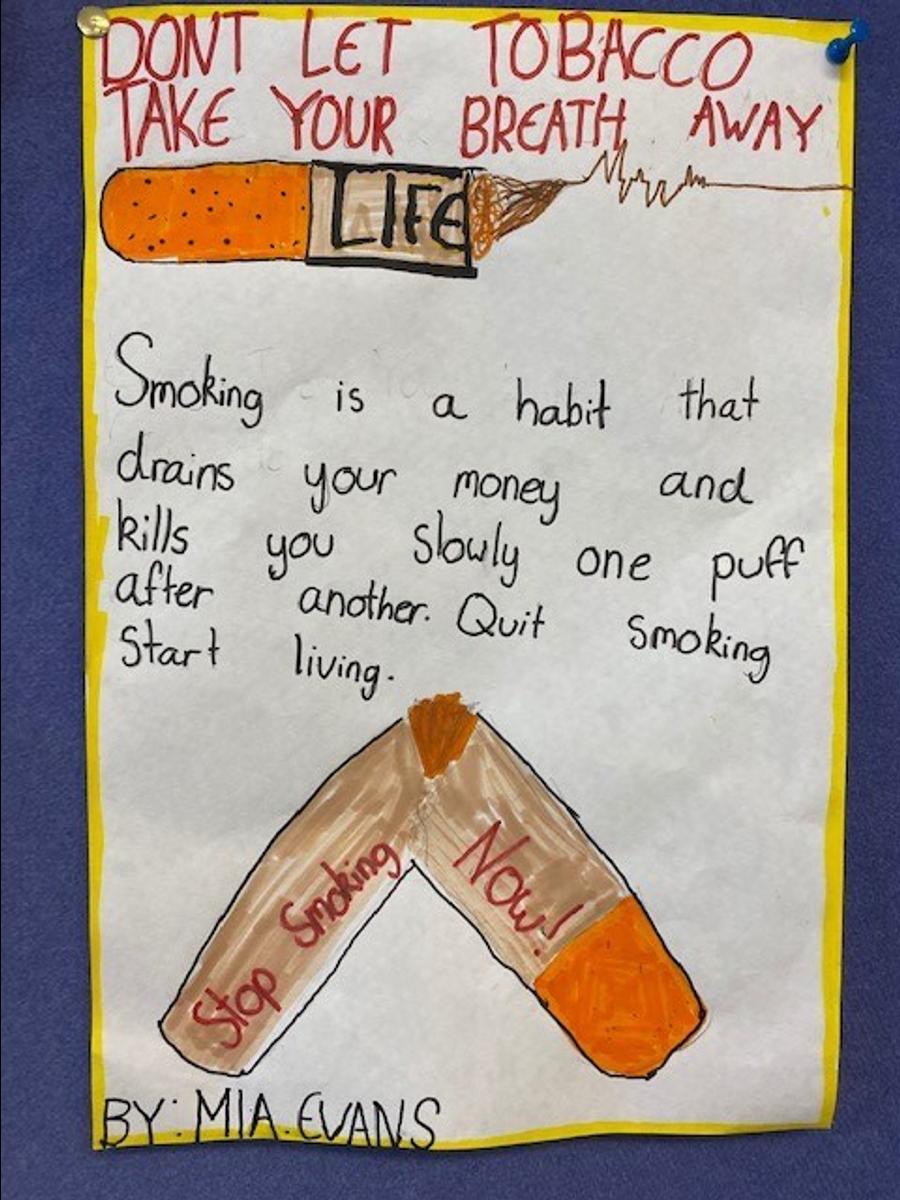 DONT LET TOBACCO
TAKE YOUR BREATH AWAY
LIFE
Smoking is a habit that
drains your money and
kills you slowly one puff
after another. Quit smoking
Start living.
Stop Smoking
Now!
BY: MIA.EVANS